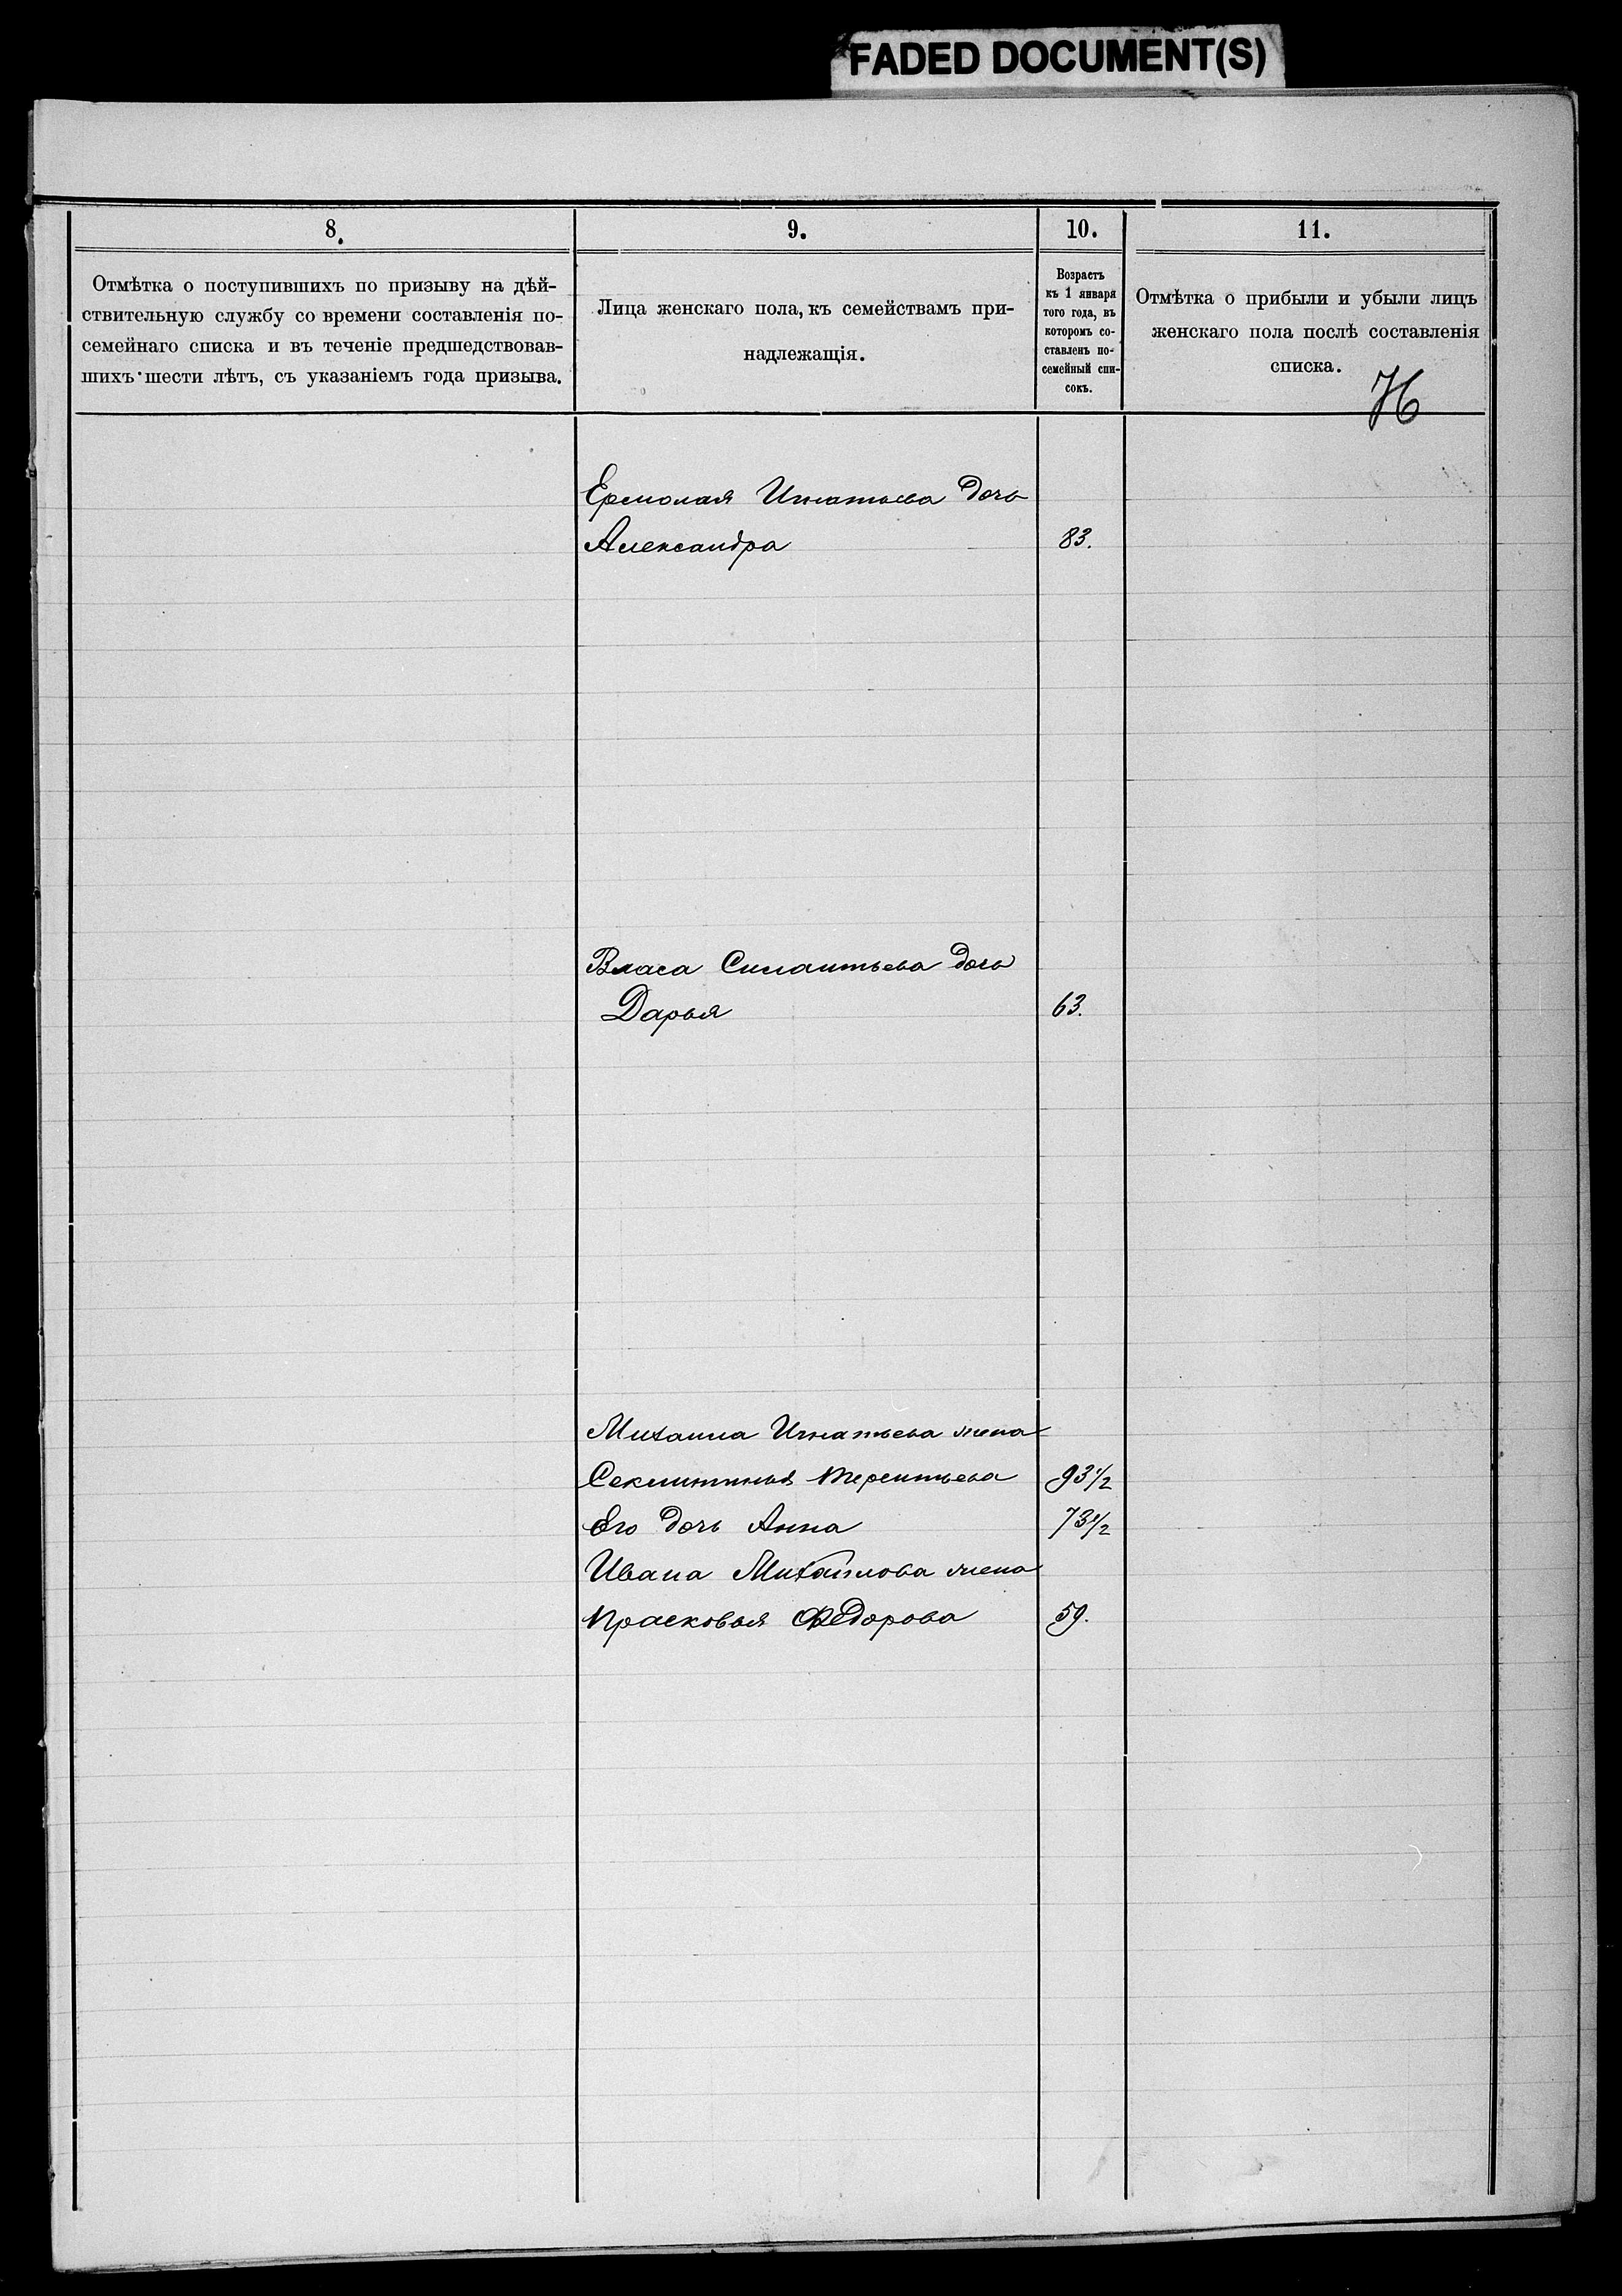 FADED DOCUMENT(S)
8.
9.
10.
11.
Отмѣтка о поступившихъ по призыву на дѣй-
ствительную службу со времени составленія по-
семейнаго списка и въ теченіе предшедствовав-
шихъ шести лѣтъ, съ указаніемъ года призыва.
Лица женскаго пола, къ семействамъ при-
надлежащія.
Возрастъ
къ 1 января
того года, въ
которомъ со-
ставленъ по-
семейный спи-
сокъ.
Отмѣтка о прибыли и убыли лицъ
женскаго пола послѣ составленія
списка.
Ермолая Игнатьева дочь
Александра 83.
Власа Силантьева дочь
Дарья 63.
Михаила Игнатьева жена
Секлитинья Терентьева 93 1/2
Его дочь Анна 73 1/2
Ивана Михайлова жена
Прасковья Федорова 59.